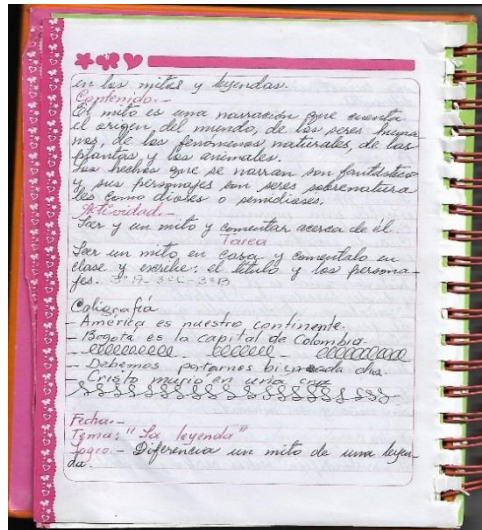 en los mitos y leyendas.
Contenido.-
El mito es una narración que cuenta
el origen, del mundo, de los seres huma-
nos, de los fenomenos naturales, de las
plantas, y los animales.
Los hechos que se narran son fantástico
y sus personajes son seres sobrenatura
les como dioses o semidioses.
Actividad.-
Leer y un mito y comentar acerca de él.
Tarea
Leer un mito en casa y comentalo en
clase y escribe: el titulo y los persona-
jes. 3ºA-3ºC-3ºB
Caligrafía
- América es nuestro continente.
- Bogotá es la capital de Colombia.
- Debemos portarnos bien cada dia.
- Cristo murio en una cruz
Fecha.-
Tema: "La leyenda"
Logro.- Diferencia un mito de una leyen-
da.